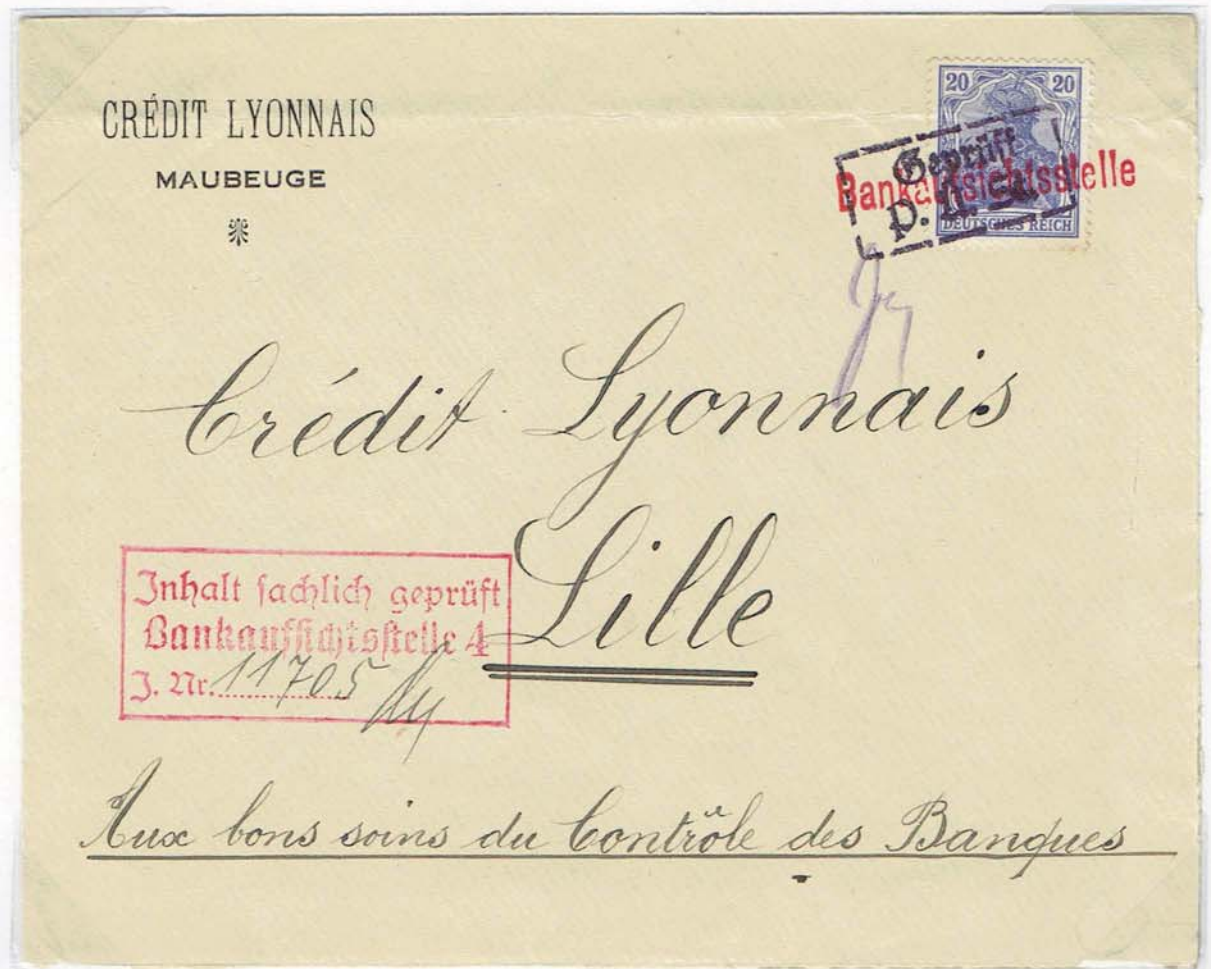 CRÉDIT LYONNAIS
MAUBEUGE
20 20
Geprüft
Bankaufsichtsstelle
P.
DEUTSCHES REICH
Crédit Lyonnais
Lille
Inhalt sachlich geprüft
Bankaufsichtsstelle 4
J. Nr. 11705
Aux bons soins du Contrôle des Banques